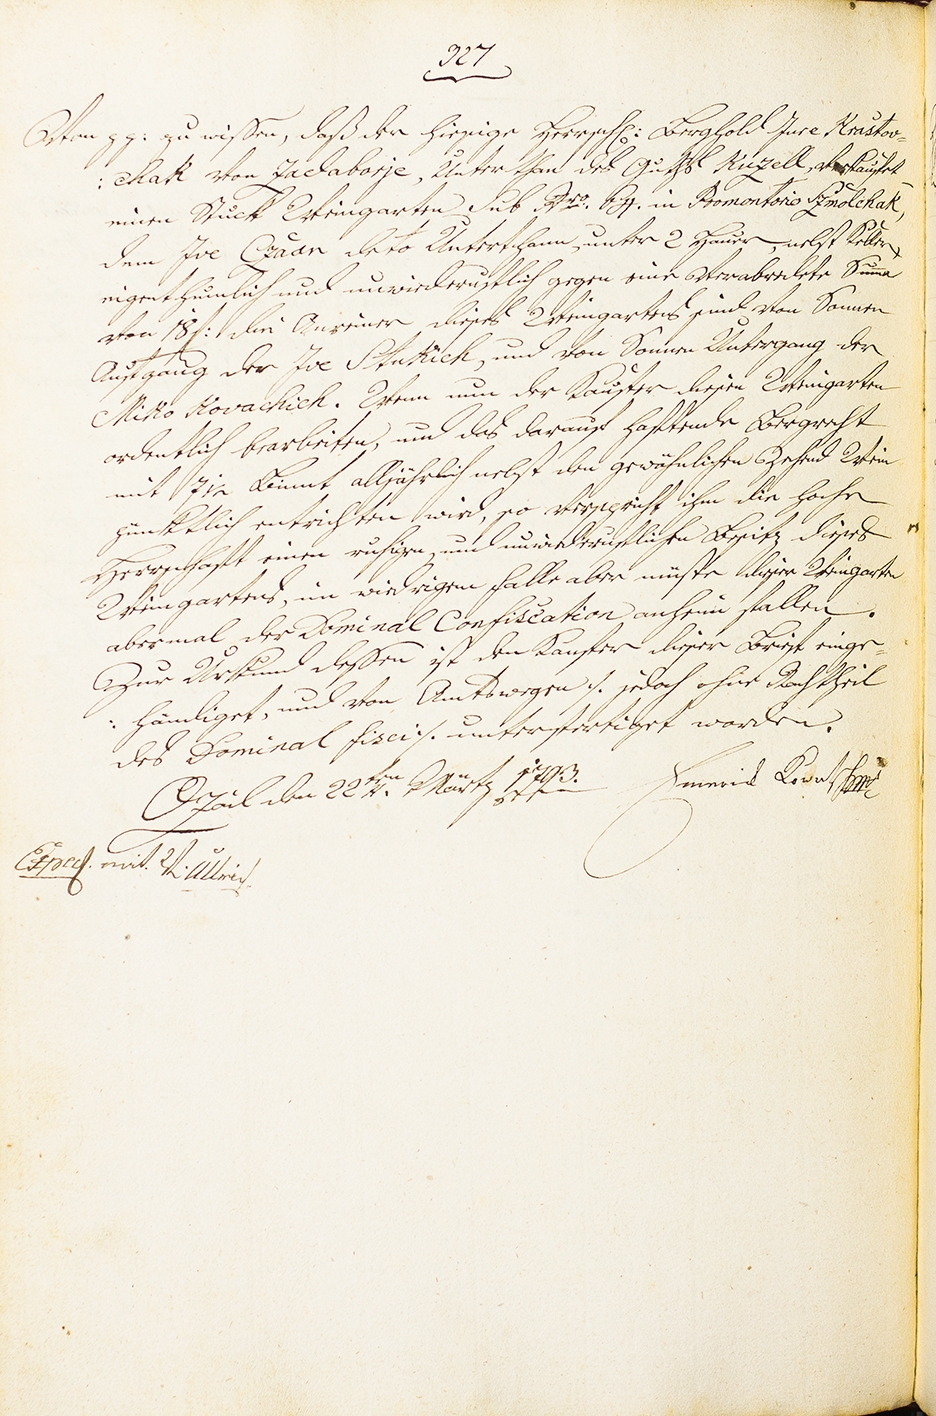 327
pp: zu wissen, daß der hiesige Herrschl: Berghold Jure Krastov=
: chak von Jadaborje, Unterthan des Guths Kuzell, verkaufet
einen Stuck Weingarten sub Nro. 64. in Promontorio Szmolchak,
dem Ive Czaar deto Unterthann, unter 2 Hauer, nebst Keller
eigenthumlich und unwiederruflich gegen eine verabredete Summa
von 18 f: die Anreiner dieses Weingartens sind von Sonnen
Aufgang der Ive Stukich, und von Sonnen Untergang der
Miko Kovachich. Wenn nun der Kaufer diesen Weingarten
ordentlich bearbeiten, und das darauf haftende Bergrecht
mit 7½ Binnt alljährlich nebst den gewöhnlichen Zehend Wein
pünktlich entrichten wird, so verspricht ihm die hohe
Herrschaft einen ruhigen und unwiederruflichen Besitz dieses
Weingartens, im widrigem falle aber müste dieser Weingarten
abermal der Dominal Confiscation anheim fallen.
Zur Urkund dessen ist den Kaufer dieser Brief einge=
: händiget, und von Amtswegen /. jedoch ohne Nachtheil
des Dominal fisci ./. unterfertiget worden.
den 22ten Märtz 1793.
Emerich
Exped. mit.